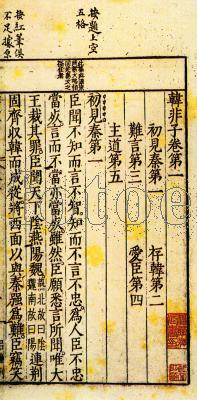 按題上空
五格
韓非子卷第一
初見秦第一 存韓第二
難言第三 愛臣第四
主道第五
初見秦第一
臣聞不知而言不智知而不言不忠為人臣不忠
當死言而不當亦當死雖然臣願悉言所聞唯大
王裁其罪臣聞天下陰燕陽魏燕北故曰陰魏南故曰陽連荆
固齊收韓而成從將西面以與秦强為難臣竊笑
toe